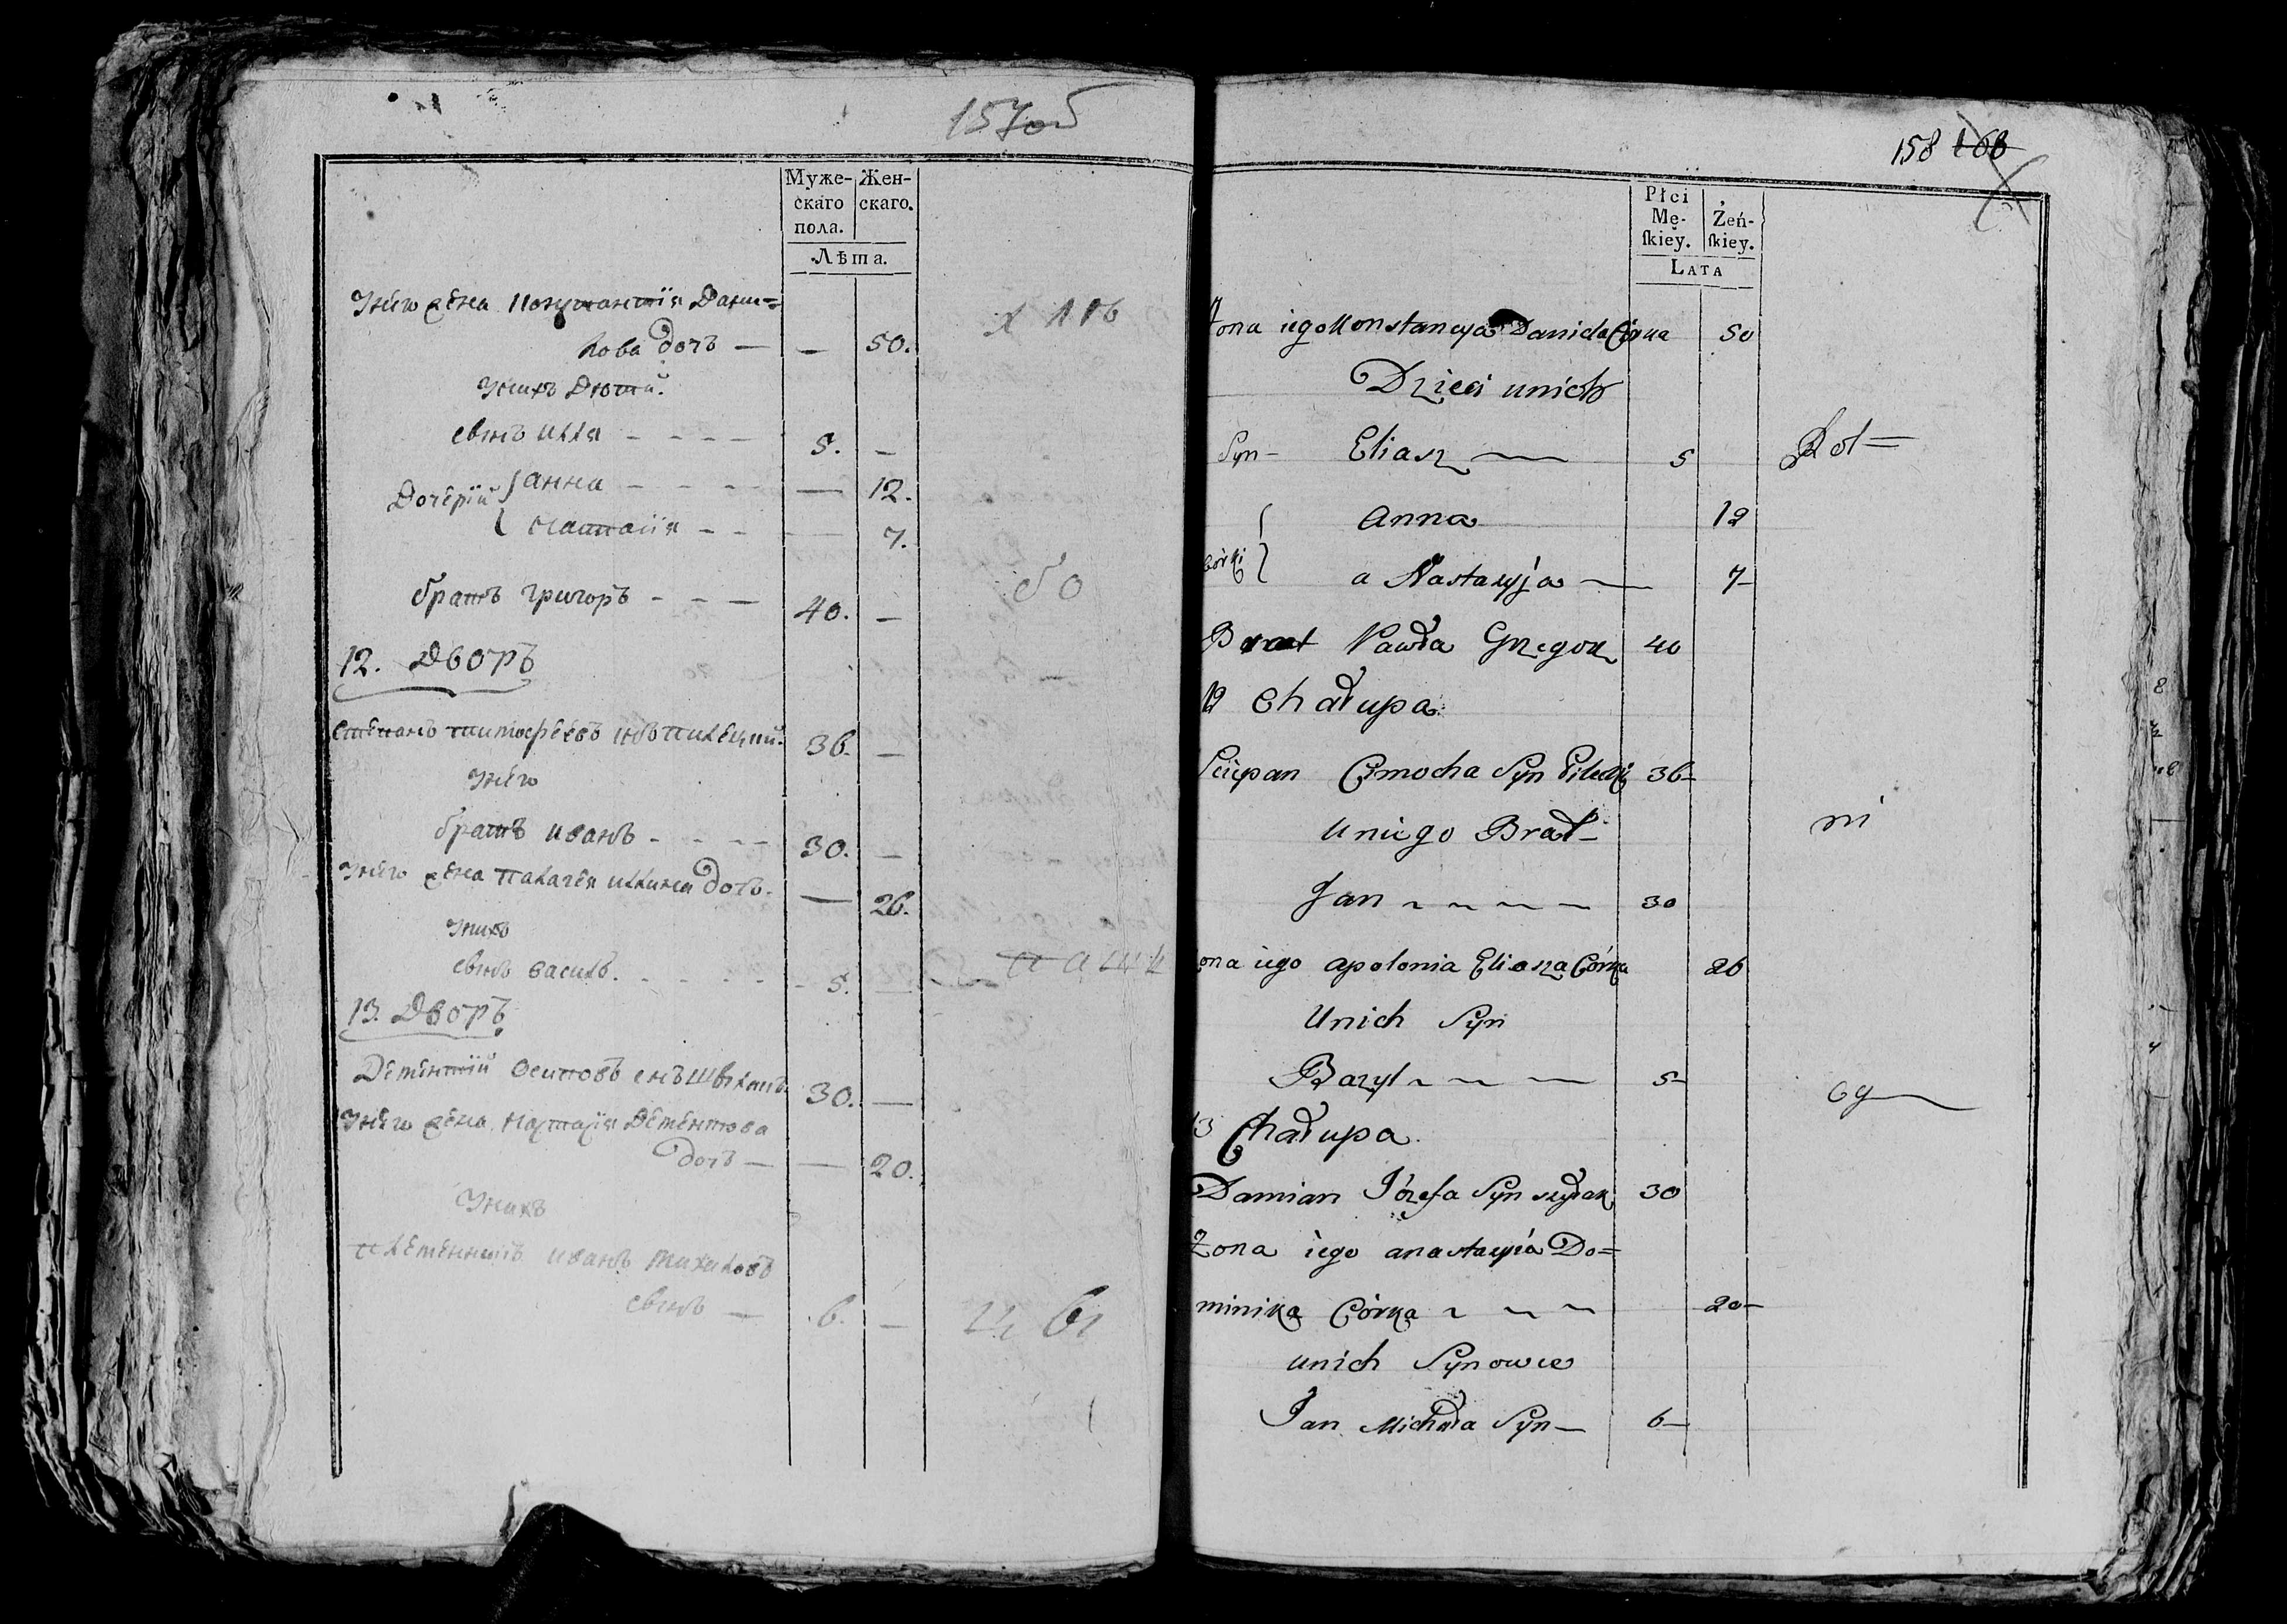 157об
Муже-
скаго
пола.
Жен-
скаго.
Лѣта.
Унего жена Константія Дани-
лова дочь — — 50.
Унихъ Дѣти.
сынъ илля - - - - 5. —
Дочерїи { анна - - - - — 12.
{ Настасія - - — 7.
братъ григоръ - - — 40. —
12. Дворъ
степанъ тимофеевъ снъ пилецкий. 36. —
Унего
братъ иванъ - - - - 30. —
Унего жена палагея иллина дочь. — 26.
Унихъ
сынъ василь. - - - - - 5.
13. Дворъ
Дементїй осиповъ снъ 30. —
Унего жена настасія Дементова
дочь — — 20.
Унихъ
племенникъ иванъ
сынъ — 6. —
158 168
Płci
Mę-
skiey.
Żeń-
skiey.
LATA
Żona iego Konstancya Daniela Córka 50
Dzieci unich
Syn - Eliasz — 5
Anna 12
Córki } a Nastazyja — 7-
Brat Pawła Grzegorz 40
12 Chałupa
Sciepan Cimocha Syn Pilecki 36-
uniego Brat-
Jan 30
ona iego apolonia Eliasza Córka 26
Unich Syn
Bazyl 5-
13 Chałupa.
Damian Józefa Syn 30
Zona iego anastazyia Do=
minika Córka 20-
unich Synowie
Jan Michała Syn — 6-